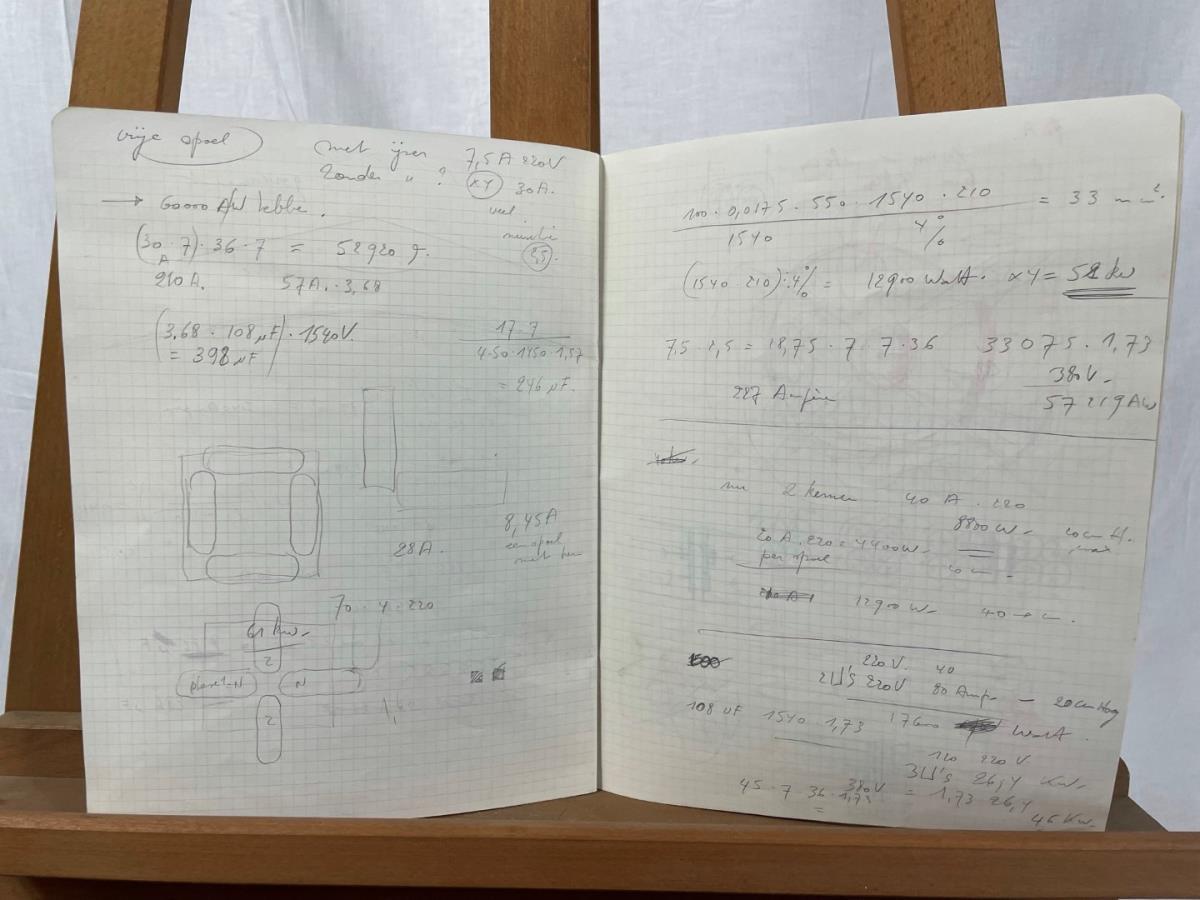 vrije spoel
met ijzer 7,5A 220V
zonder " ? x4 30A.
→ 60000 AW hebbe.
veel
2,5
(30 · 7) · 36 · 7 = 52920 g.
A
210A. 57A. · 3,68
(3,68 · 108 µF) · 1540V.
= 398 µF
17 · 7
4·50·1450·1,57
= 246 µF.
8,45A
een spoel
28A.
70 · 4 · 220
61 kW
2
N
N
2
100 · 0,0175 · 550 · 1540 · 210 = 33 mm²
1540 4%
(1540 210) : 4% = 12900 Watt. x4 = 52 kW
7,5 · 2,5 = 18,75 · 7 · 7 · 36 33075 · 1,73
380V
227 Ampère 57219 AW
2 kernen 40 A · 220
8800 W 40cm H.
max
20 A. 220 = 4400W
per spoel
12900 W 40 → cm.
220 V. 40
2 U's 220V 80 Amp. — 20cm Hoog
108 uF 1540 · 1,73 17600 Watt.
120 220V
3 U's 26,4 KW
45 · 7 · 36 · 1,73 380V = 1,73 · 26,4
=
46 KW